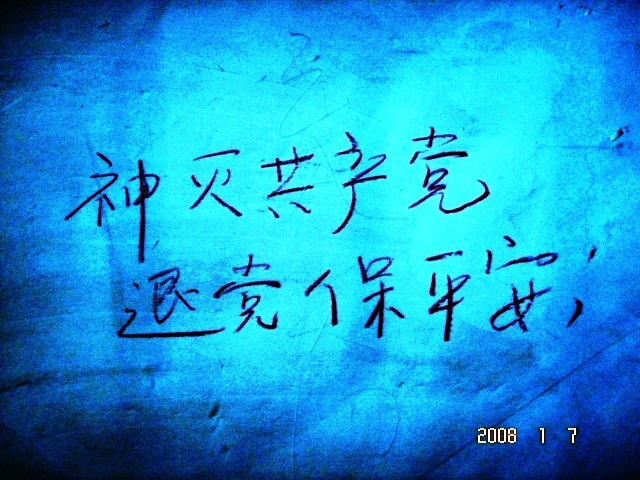 神灭共产党
退党保平安;
2008 1 7